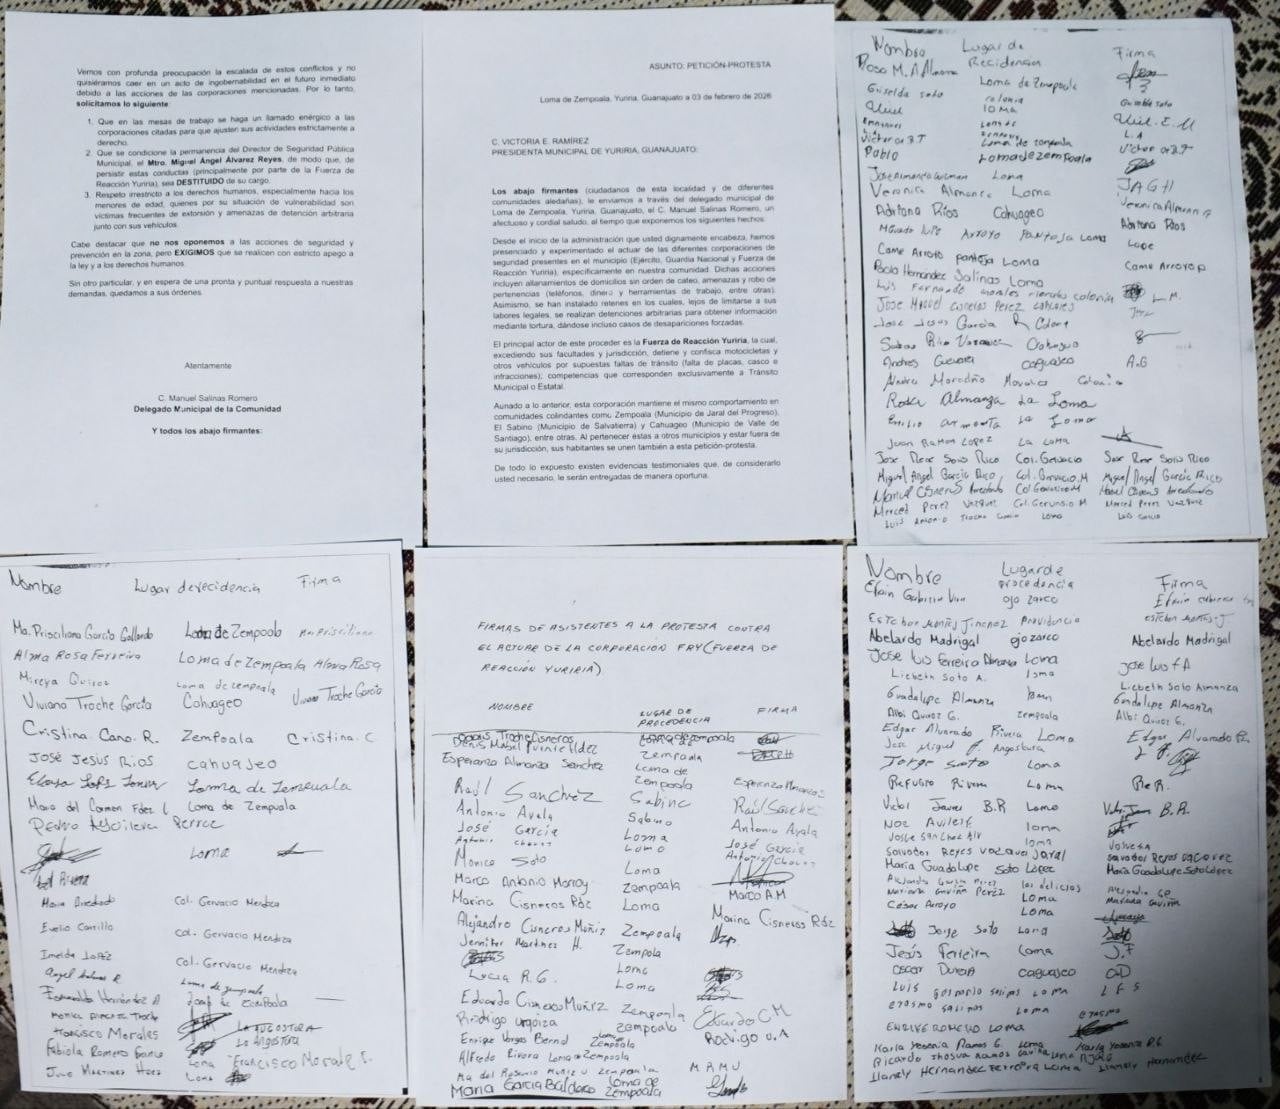 Vemos con profunda preocupación la escalada de estos conflictos y no
quisiéramos caer en un acto de ingobernabilidad en el futuro inmediato
debido a las acciones de las corporaciones mencionadas. Por lo tanto,
solicitamos lo siguiente:
1. Que en las mesas de trabajo se haga un llamado enérgico a las
corporaciones citadas para que ajusten sus actividades estrictamente a
derecho.
2. Que se condicione la permanencia del Director de Seguridad Pública
Municipal, el Mtro. Miguel Ángel Álvarez Reyes, de modo que, de
persistir estas conductas (principalmente por parte de la Fuerza de
Reacción Yuriria), sea DESTITUIDO de su cargo.
3. Respeto irrestricto a los derechos humanos, especialmente hacia los
menores de edad, quienes por su situación de vulnerabilidad son
víctimas frecuentes de extorsión y amenazas de detención arbitraria
junto con sus vehículos.
Cabe destacar que no nos oponemos a las acciones de seguridad y
prevención en la zona, pero EXIGIMOS que se realicen con estricto apego a
la ley y a los derechos humanos.
Sin otro particular, y en espera de una pronta y puntual respuesta a nuestras
demandas, quedamos a sus órdenes.
Atentamente
C. Manuel Salinas Romero
Delegado Municipal de la Comunidad
Y todos los abajo firmantes:
ASUNTO: PETICIÓN-PROTESTA
Loma de Zempoala, Yuriria, Guanajuato a 03 de febrero de 2026
C. VICTORIA E. RAMÍREZ
PRESIDENTA MUNICIPAL DE YURIRIA, GUANAJUATO:
Los abajo firmantes (ciudadanos de esta localidad y de diferentes
comunidades aledañas), le enviamos a través del delegado municipal de
Loma de Zempoala, Yuriria, Guanajuato, el C. Manuel Salinas Romero, un
afectuoso y cordial saludo, al tiempo que exponemos los siguientes hechos:
Desde el inicio de la administración que usted dignamente encabeza, hemos
presenciado y experimentado el actuar de las diferentes corporaciones de
seguridad presentes en el municipio (Ejército, Guardia Nacional y Fuerza de
Reacción Yuriria), específicamente en nuestra comunidad. Dichas acciones
incluyen allanamientos de domicilios sin orden de cateo, amenazas y robo de
pertenencias (teléfonos, dinero y herramientas de trabajo, entre otras).
Asimismo, se han instalado retenes en los cuales, lejos de limitarse a sus
labores legales, se realizan detenciones arbitrarias para obtener información
mediante tortura, dándose incluso casos de desapariciones forzadas.
El principal actor de este proceder es la Fuerza de Reacción Yuriria, la cual,
excediendo sus facultades y jurisdicción, detiene y confisca motocicletas y
otros vehículos por supuestas faltas de tránsito (falta de placas, casco e
infracciones); competencias que corresponden exclusivamente a Tránsito
Municipal o Estatal.
Aunado a lo anterior, esta corporación mantiene el mismo comportamiento en
comunidades colindantes como Zempoala (Municipio de Jaral del Progreso),
El Sabino (Municipio de Salvatierra) y Cahuageo (Municipio de Valle de
Santiago), entre otras. Al pertenecer éstas a otros municipios y estar fuera de
su jurisdicción, sus habitantes se unen también a esta petición-protesta.
De todo lo expuesto existen evidencias testimoniales que, de considerarlo
usted necesario, le serán entregadas de manera oportuna.
Nombre Lugar de Recidencia Firma
Rosa M. A Almanza Loma de Zempoala
Griselda Soto colonia Griselda Soto
Uriel loma Uriel. E. M
L.A
Victor Loma de zempoala
Pablo Loma de zempoala
Jose Armando Guzman Loma JAGH
Veronica Almanza Loma Veronica Almanza
Adriana Ríos Cahuageo Adriana Rios
Arroyo Pantoja Loma Lupe
Came Arroyo pantoja Loma Came Arroyo p
Paola Hernández Salinas Loma
Luis Fernando morales colonia L. M.
Jose Miguel Cisneros Perez
Jose Jesus Garcia R Colonia
Andres Guevara caguajeo A.G
Andres Morales Colonia
Rosa Almanza La Loma
Emilio La Loma
Juan Ramon Lopez La Loma
Jose Rene Soto Rico Col. Gervacio Jose Rene Soto Rico
Miguel Angel Garcia Rico Col. Gervacio. M Miguel Angel Garcia Rico
Marisol Cisneros Arredondo Col Gervacio M Marisol Cisneros Arredondo
Merced Perez Vazquez Col. Gervasio M Merced Perez Vazquez
Luis Antonio Troche Loma Luis
Nombre Lugar de recidencia Firma
Ma. Prisciliana García Gallardo Loma de Zempoala Ma Prisciliana
Alma Rosa Ferreira Loma de Zempoala Alma Rosa
Mireya Quiroz Loma de zempoala
Viviano Troche García Cahuageo Viviano Troche García
Cristina. Cano. R. Zempoala Cristina. C
José Jesus Rios cahuajeo
Loma de Zempoala
Maria del Carmen Loma de Zempoala
Pedro Aguilera Perez
Loma
Rivera
Maria Arredondo Col. Gervacio Mendoza
Evelio Carrillo Col. Gervacio Mendoza
Imelda López Col. Gervacio Mendoza
Angel Loma de zempoala
Esmeralda Hernández Zempoala
Monica Troche LA ANGOSTURA
Francisco Morales La Angostura
Fabiola Romero Loma Francisco Morales
Juan Martinez Loma
FIRMAS DE ASISTENTES A LA PROTESTA CONTRA
EL ACTUAR DE LA CORPORACION FRY (FUERZA DE
REACCIÓN YURIRIA).
NOMBRE LUGAR DE PROCEDENCIA FIRMA
Troche Cisneros Loma de zempoala
Denis Mabel Puente Hdez Zempoala
Esperanza Almanza Sanchez Loma de Zempoala Esperanza Almanza S
Raúl Sanchez Sabino Raúl Sanchez
Antonio Ayala Sabino Antonio Ayala
José García Loma José García
Antonio Chavez Loma Antonio Chavez
Monica Soto Loma
Marco Antonio Monroy Zempoala Marco A.M
Marina Cisneros Rdz Loma Marina Cisneros Rdz
Alejandro Cisneros Muñiz Zempoala
Jennifer Martinez H. Zempola
Loma
Lucia R.G. Loma
Eduardo Cisneros Muñiz Zempoala Eduardo CM
Rodrigo Urgoiza zempoala Rodrigo U.A
Enrique Vargas Bernal Loma de Zempoala
Alfredo Rivera Loma de Zempoala
Ma del Rosario Muñiz U Zempoala M A M U
Maria Garcia Balderas Loma de Zempoala
Nombre Lugar de procedencia Firma
Efrain Gabino ojo zarco Efrain
Esteban Montes Jimenez Providencia esteban montes. J
Abelardo Madrigal ojo zarco Abelardo Madrigal
Jose Luis Ferreira Almanza Loma jose Luis F A
Lizbeth Soto A. loma Lizbeth Soto Almanza
Guadalupe Almanza loma Guadalupe Almanza
Albi Quiroz G. zempoala Albi Quiroz G.
Edgar Alvarado Rivera Loma Edgar Alvarado R
Jose Miguel Angostura
Jorge Soto Loma
Refugio Rivera Loma Re.R.
Vidal Javier B.R Loma B.R.
Noe Aviles loma
Josue Sanchez loma
Salvador Reyes Vazquez Jaral Salvador Reyes Vazquez
Maria Guadalupe Soto López Maria Guadalupe Soto López
Alejandra Gaviña Perez las delicias Alejandra GP
Mariana Gaviña Perez Loma Mariana Gaviña
César Arroyo Loma
Jorge Soto Loma
Jesús Ferreira Loma J.F
Oscar Duran caguajeo OD
Luis Salinas Loma L F S
erasmo salinas Loma erasmo
ENRIQUE ROMERO LOMA
Karla Yesenia Ramos G. Loma Karla Yesenia R G
Ricardo Jhosua Ramos Gaviña Loma
Llanely Hernandez Ferreira Loma Llanely Hernandez